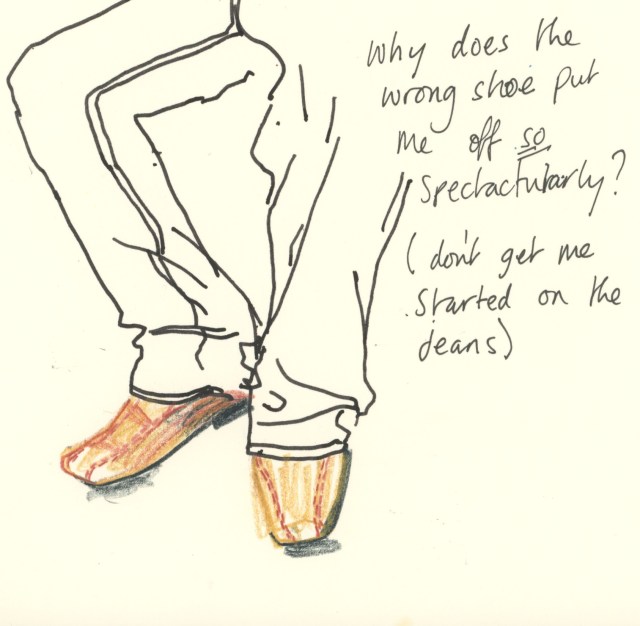 Why does the
wrong shoe put
me off so
spectactularly?
(don't get me
started on the
jeans)